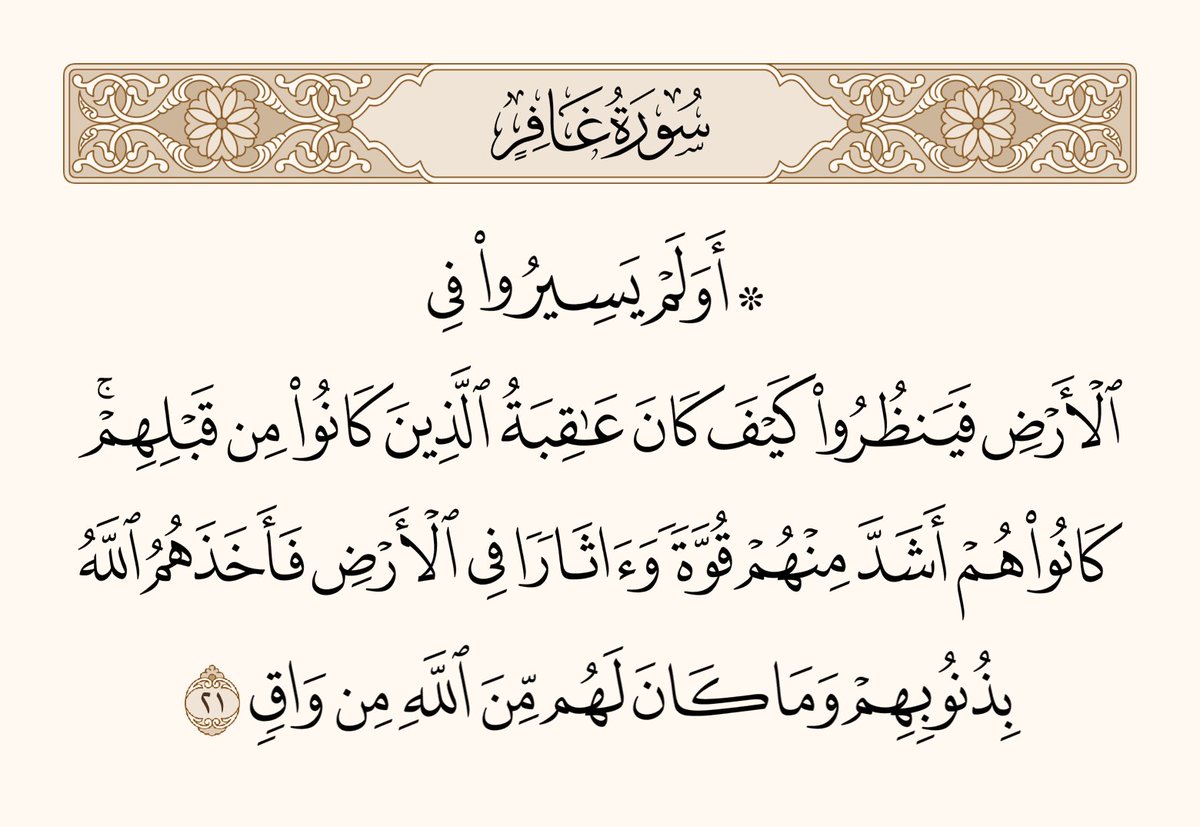 سُورَةُ غَافِرٍ
* أَوَلَمْ يَسِيرُوا۟ فِى
ٱلْأَرْضِ فَيَنظُرُوا۟ كَيْفَ كَانَ عَـٰقِبَةُ ٱلَّذِينَ كَانُوا۟ مِن قَبْلِهِمْ ۚ
كَانُوا۟ هُمْ أَشَدَّ مِنْهُمْ قُوَّةً وَءَاثَارًا فِى ٱلْأَرْضِ فَأَخَذَهُمُ ٱللَّهُ
بِذُنُوبِهِمْ وَمَا كَانَ لَهُم مِّنَ ٱللَّهِ مِن وَاقٍ ٢١